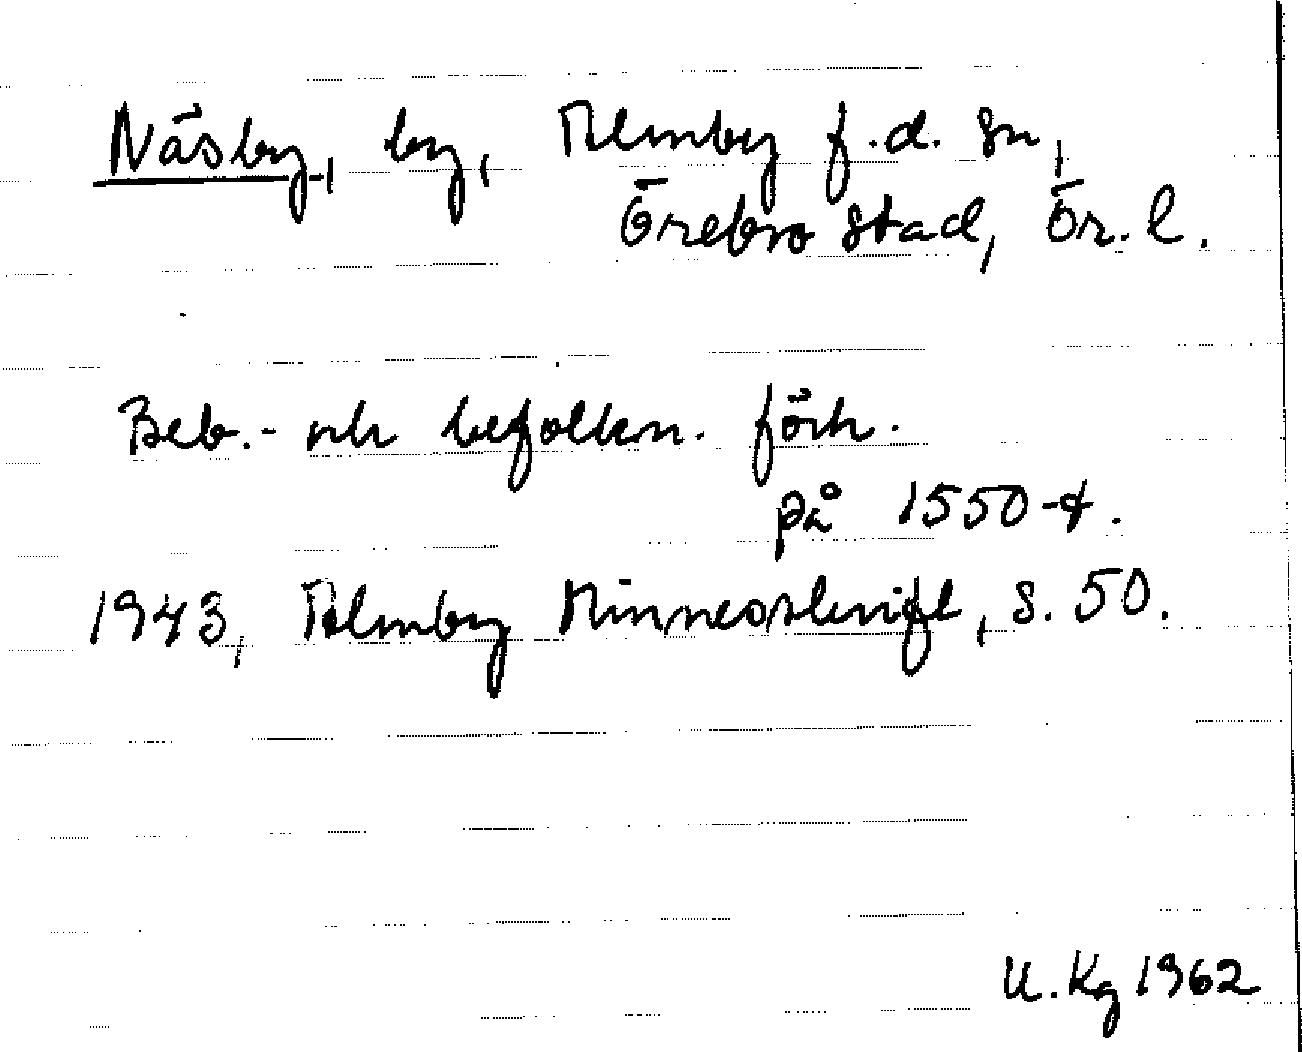 Näsby, by, Almby f.d. sn,
Örebro stad, Ör. l.
Beb.- och befolkn. förh.
på 1550-t.
1943, Almby Minnesskrift, s. 50.
U. Kg 1962